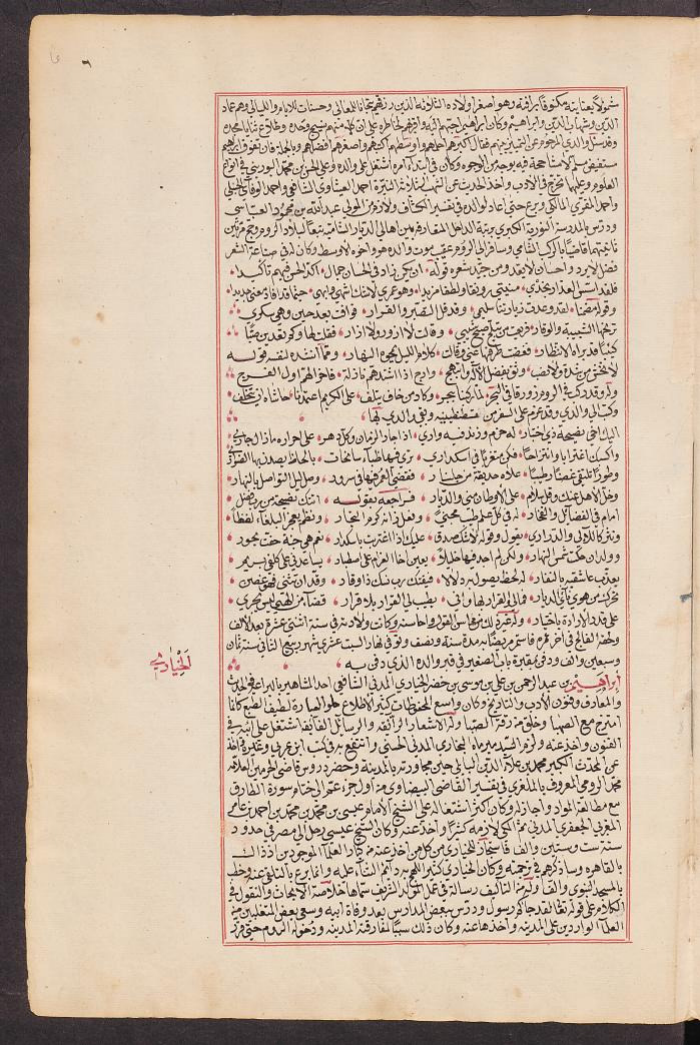 شمولاً بعنايته مكنوفاً برافته وهو اصغر اولاده الثلاثة الذين رزقهم تجاه الله تعالى وحسنات للايام والليالي وهم عماد
الدين وشهاب الدين وابراهيم وكان ابراهيم احبهم اليه واقربهم لخاطره على ان كلا منهم نسيج وحده وطلوع ثنايا مجده
وقد سئل والدي المرحوم عن التمييز بينهم فقال اكبرهم احلمهم واوسطهم اكرمهم واصغرهم افضلهم وبالجملة فان تفوق ابراهيم
مستفيض مسلم لا مشاححة فيه بوجه من الوجوه وكان في ابتداء امره اشتغل على والده وعلى الحسن بن محمد البوريني في انواع
العلوم وعليهما تخرج في الادب واخذ الحديث عن الشهب الثلاثة النيرة احمد العيثاوي الشافعي واحمد الوفائي الحنبلي
واحمد المقري المالكي وبرع حتى اعاد لوالده في تفسير الكشاف ولازم من المولى عبد الله بن محمود العباسي
ودرس بالمدرسة النورية الكبرى برتبة الداخل المتعارفة بين اهالي الديار الشامية تبعا لبلاد الروم وحج مرتين
ثانيتهما قاضيا بالركب الشامي وسافر الى الروم عقب موت والده هو واخوه الاوسط وكان له في صناعة الشعر
فضل لا يرد واحسان لا يعد ومن جيد شعره قوله ان يكن زاد في الحسان جمال اكد الحسن فيهم تاكيدا
فلقد اسس العذار بخدي منيتي رونقا ولطفا مزيدا وهو عمري لا شك اشهى وابهى حيثما قد افاد معنى جديدا
وقوله مضمنا لقد وعدت زيارتنا سليمى وقد قل التصبر والقرار فوافت بعد حين وهي سكرى
يرنحها الشبيبة والوقار فرمت وصالها
كئيبا قد براه الانتظار فغضت طرفها عني وقالت كلام الليل يمحوه النهار ومما انشده لنفسه قوله
لا تخش من شدة ولا نصب وثق بفضل الاله وابتهج وارج اذا اشتد هم نازلة فاخر الهم اول الفرج
وله وقد ركب في الروم زورقا في البحر لما ركبنا ببحر وكاد من خاف يتلف على الكريم اعتمدنا حاشاه ان يتخلف
وكتب الى والدي وقد عزم على السفر من قسطنطينية وبقي والدي بها
اليك اخي نصيحة ذي اختبار له حزم وزند فيه واري اذا جار الزمان وكل دهر على احراره ما زال جاري
واكسبك اغترابا وانتزاحا فكن مغرىً في اسكداري ترى فيها ظباء سانحات بالحاظ يصدن بها الضواري
وطورا تلتقي غصنا رطيبا علاه حديقة من جلنار فقضي العمر فيها في سرور وصل ليل التواصل بالنهار
وخل الاهل عنك وقل سلام على الاوطان مني والديار فراجعه بقوله اتتك نصيحة من رب فضل
امام في الفضائل والفخار له في كل علم طيب مجنى وفعل زانه كرم النجار ونظم يعجز البلغاء لفظا
ونثر كاللآلي والدراري يقول وقوله لا شك صدق عليك اذا اغتربت باسكدار نعم هي جنة حفت بحور
وولدان حكت شمس النهار ولكن لم اجد فيها خليلا يعين اخا الغرام على اصطبار يساعدني على كلفي ببدر
يعذب عاشقيه بالنفار له لحظ يصول به دلالا فيفتك رب نسك ذا وقار وقد ان تثنى فهو غصن
تحركه من هوى نائي الديار فما لي والقرار بها واني يطيب لي القرار بلا قرار قضاء من الهي ليس تجري
على قدر الارادة باختيار وله غير ذلك من محاسن القول واحاسنه وكانت ولادته في سنة اثنتي عشرة بعد الالف
ولحقه الفالج في آخر عمره فاستمر مريضا به مدة سنة ونصف وتوفي نهار السبت عشري شهر ربيع الثاني سنة ثمان
وسبعين والف ودفن بمقبرة باب الصغير في قبر والده الذي دفن به
الخياري
ابراهيم بن عبد الرحمن بن علي بن موسى بن خضر الخياري المدني الشافعي احد المشاهير بالبراعة في الحديث
والمعارف وفنون الادب والتاريخ وكان واسع المحفوظات كثير الاطلاع حلو العبارة لطيف الطبع كانما
امتزج مع الصهبا وخلق من رقة الصبا وله الاشعار الرائقة والرسائل الفائقة اشتغل على ابيه في
الفنون واخذ عنه ولزم السيد مير ماه البخاري المدني الحسني وانتفع به في كتب ابن عربي وغيره
عن المحدث الكبير محمد بن علاء الدين البابلي حين مجاورته بالمدينة وحضر دروس قاضي الحرمين العلامة
محمد الرومي المعروف بالملغري في تفسير القاضي البيضاوي من اول جزء عم الى ختام سورة الطارق
مع مطالعة المواد واجاز له وكان اكثر اشتغاله على الشيخ الامام عيسى بن محمد بن محمد بن احمد بن عامر
المغربي الجعفري المدني ثم المكي لازمه كثيرا واخذ عنه وكان الشيخ عيسى رحل الى مصر في حدود
سنة ست وستين والف فاستجاز للخياري من كل من اخذ عنه من كبار العلماء الموجودين اذ ذاك
بالقاهرة وساذكرهم في ترجمته وكان الخياري كثير اللهج به دائم الثناء عليه وانما برع بالتلقي عنه وخطب
بالمسجد النبوي والف وله من التآليف رسالة في عمل المولد الشريف سماها خلاصة الابحاث والنقول في
الكلام على قوله تعالى لقد جاءكم رسول ودرس ببعض المدارس بعد وفاة ابيه وسعى بعض المتغلبين من
العلماء الواردين على المدينة واخذها عنه وكان ذلك سببا لمفارقته المدينة ودخوله الروم حتى قرر